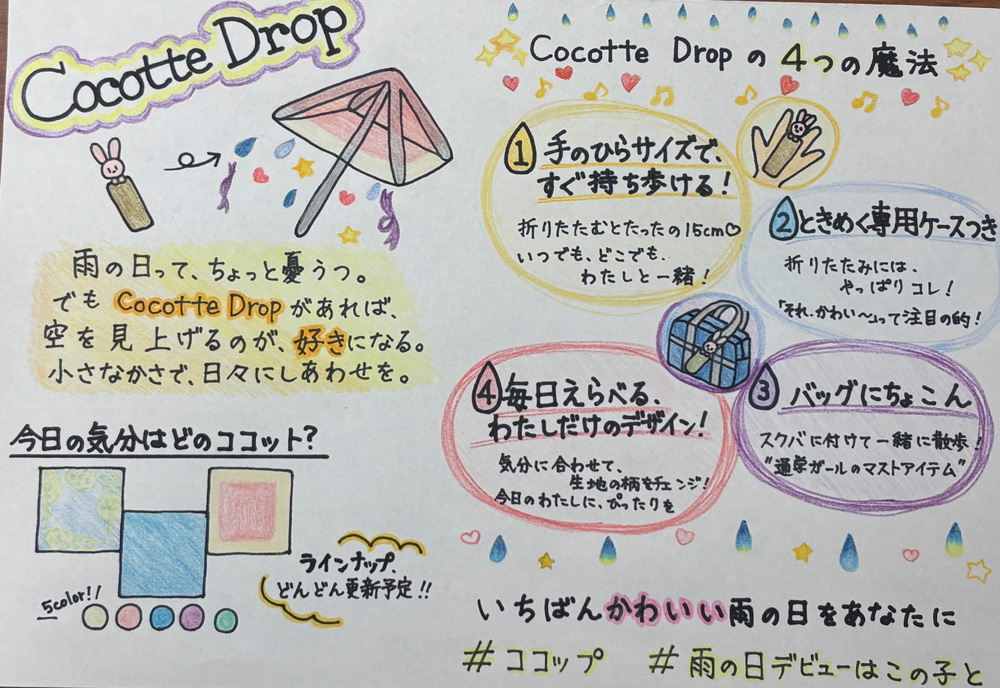 Cocotte Drop
雨の日って、ちょっと憂うつ。
でも Cocotte Drop があれば、
空を見上げるのが、好きになる。
小さなかさで、日々にしあわせを。
今日の気分はどのココット?
5color!!
ラインナップ、
どんどん更新予定!!
Cocotte Drop の 4つの魔法
1 手のひらサイズで、
すぐ持ち歩ける!
折りたたむとたったの15cm♡
いつでも、どこでも、
わたしと一緒!
2 ときめく専用ケースつき
折りたたみには、
やっぱりコレ!
「それ、かわい〜」って注目の的!
3 バッグにちょこん
スクバに付けて一緒に散歩!
"通学ガールのマストアイテム"
4 毎日えらべる、
わたしだけのデザイン!
気分に合わせて、
生地の柄をチェンジ!
今日のわたしに、ぴったりを
いちばんかわいい雨の日をあなたに
#ココップ #雨の日デビューはこの子と